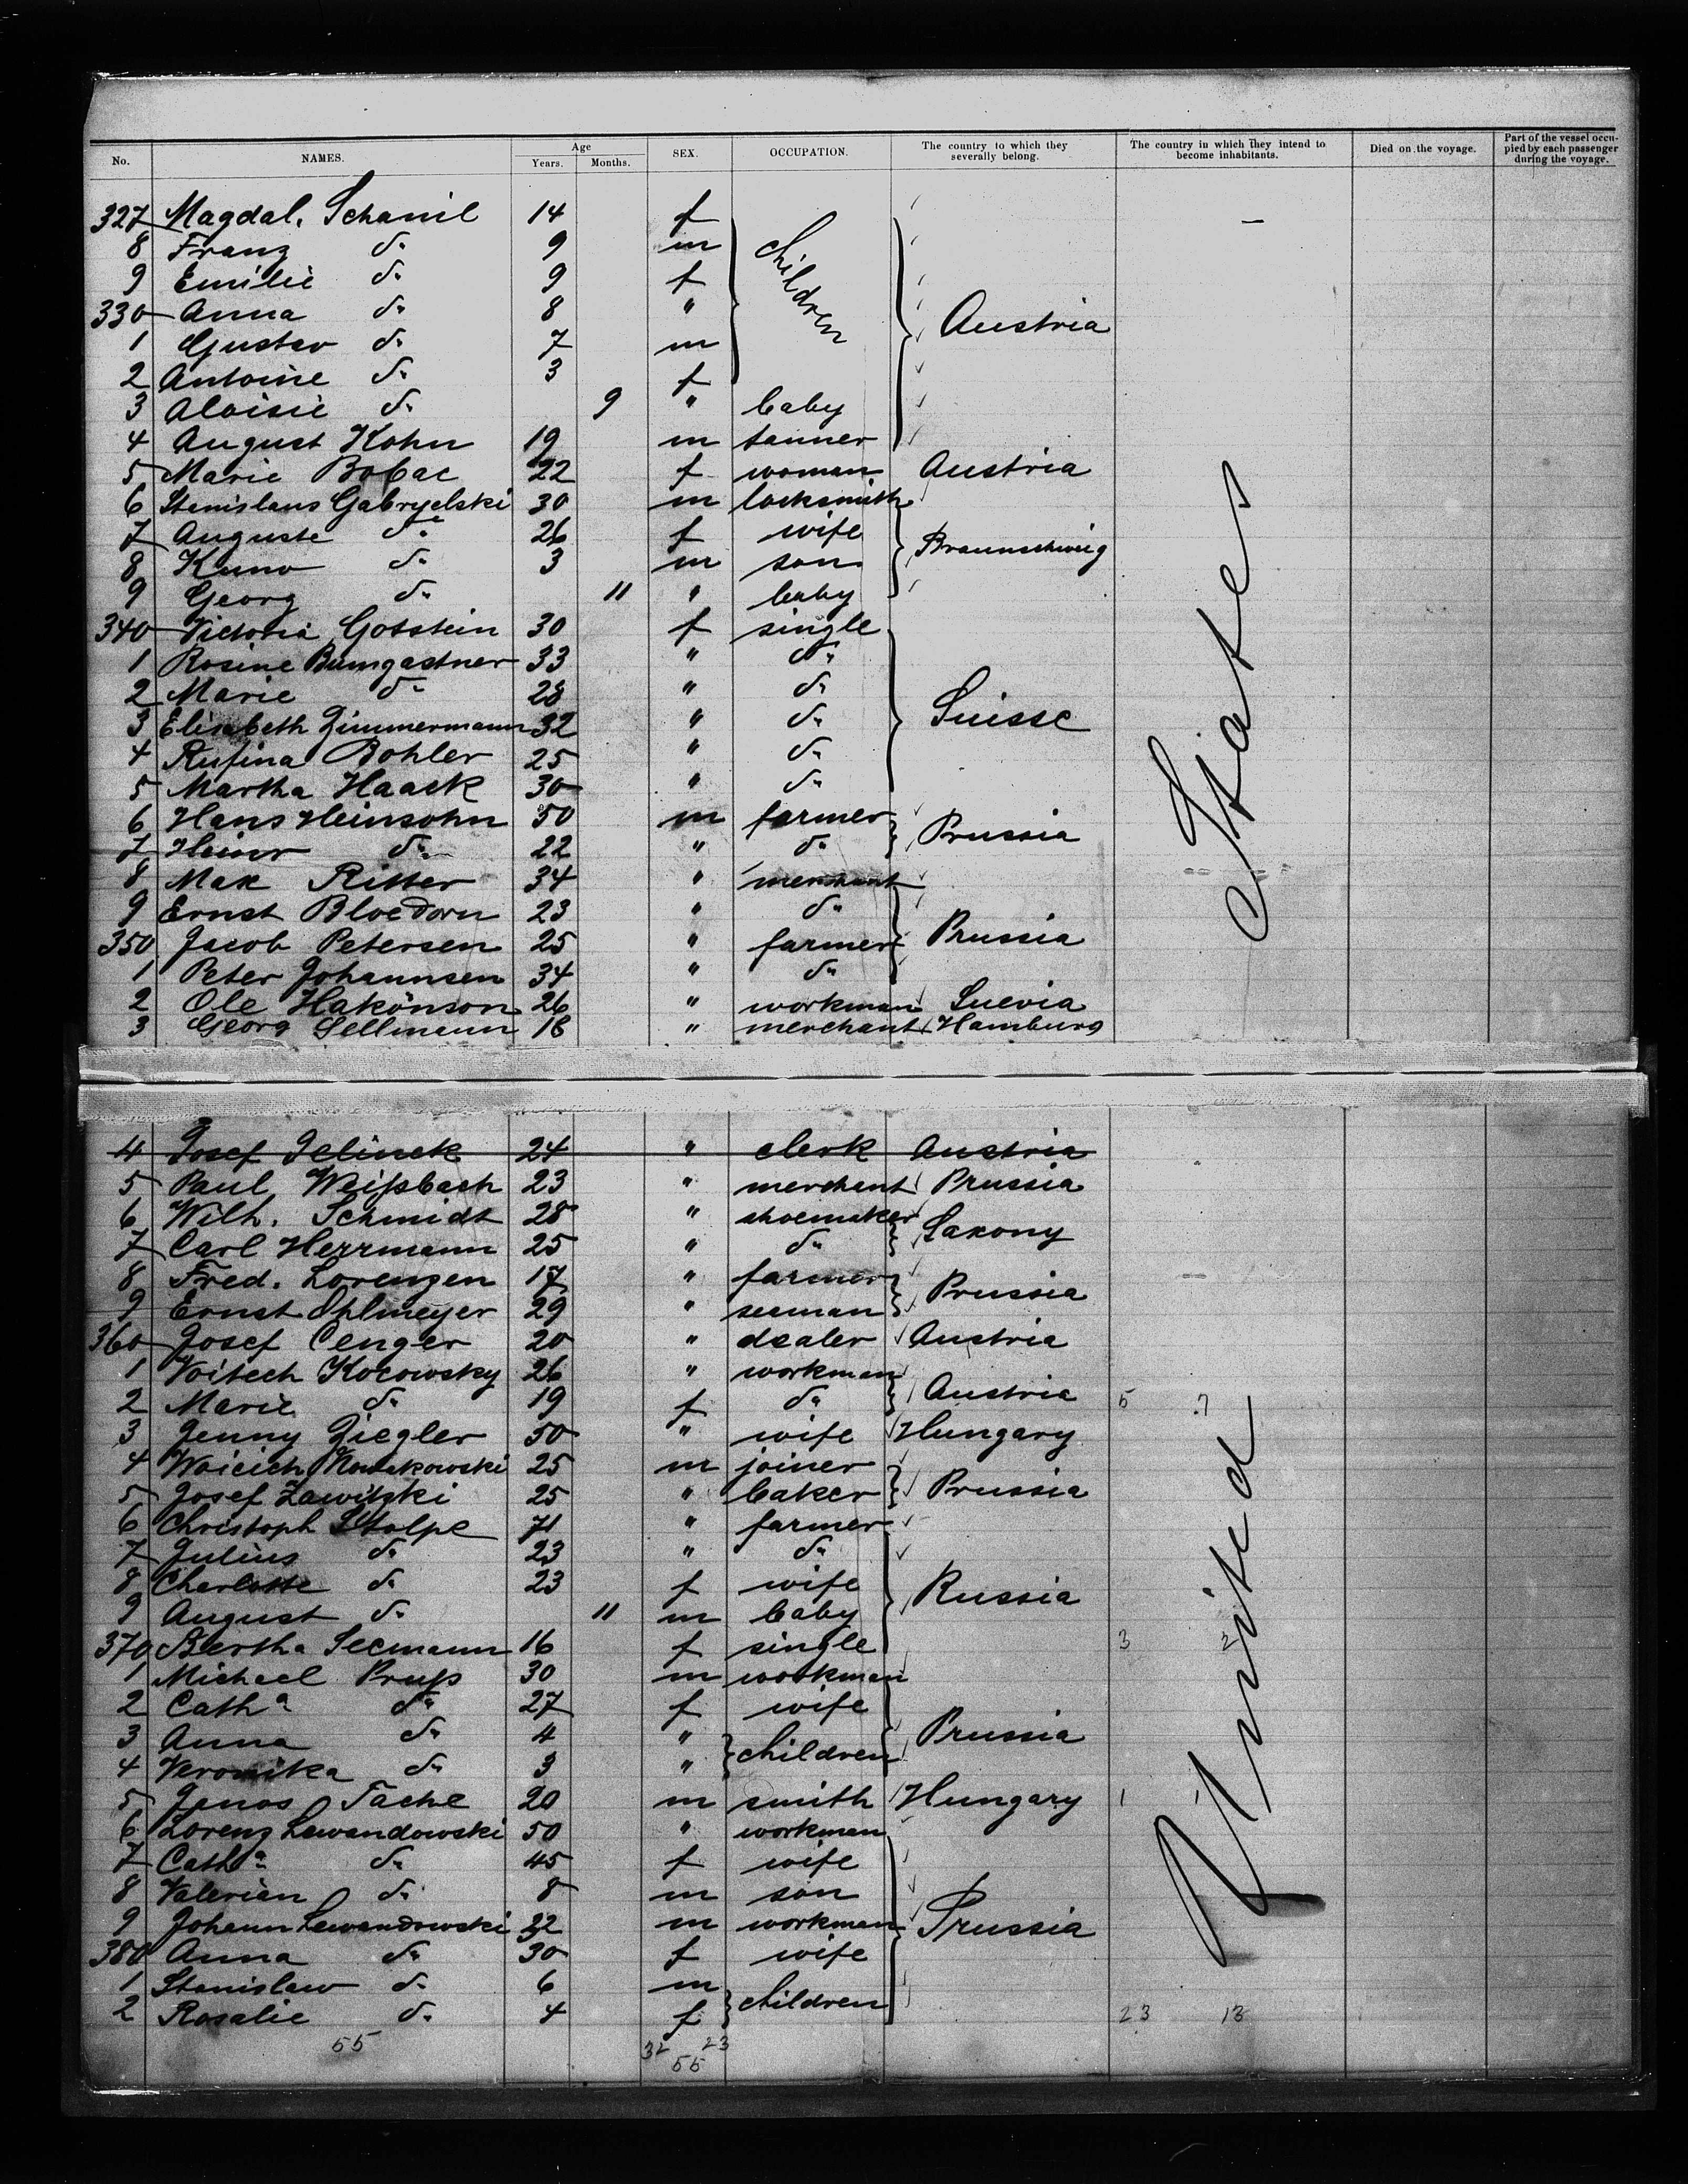 No. NAMES. Age Years. Months. SEX. OCCUPATION. The country to which they severally belong. The country in which they intend to become inhabitants. Died on the voyage. Part of the vessel occupied by each passenger during the voyage.
327 Magdal. Schanil 14 f
8 Franz do 9 m
9 Emilie do 9 f
330 Anna do 8 " children Austria
1 Gustav do 7 m
2 Antoine do 3 f
3 Aloisie do 9 " baby
4 August Kohn 19 m tanner
5 Marie Bobac 22 f woman Austria
6 Stanislaus Gabryelski 30 m locksmith
7 Auguste do 26 f wife Braunschweig
8 Kuno do 3 m son
9 Georg do 11 " baby
340 Victoria Gotstein 30 f single
1 Rosine Bumgastner 33 " do
2 Marie do 28 " do
3 Elisabeth Zimmermann 32 " do Suisse
4 Rufina Bohler 25 " do
5 Martha Haack 30 " do
6 Hans Heinsohn 50 m farmer Prussia
7 Heinr do 22 " do
8 Max Ritter 34 " merchant
9 Ernst Bloedorn 23 " do
350 Jacob Petersen 25 " farmer Prussia
1 Peter Johannsen 34 " do
2 Ole Hakönson 26 " workman Suevia
3 Georg Sellmann 18 " merchant Hamburg
4 Josef Jelinek 24 " clerk Austria
5 Paul Weißbach 23 " merchant Prussia
6 Wilh. Schmidt 28 " shoemaker Saxony
7 Carl Herrmann 25 " do
8 Fred. Lorenzen 17 " farmer Prussia
9 Ernst Ohlmeyer 29 " seaman
360 Josef Cenger 20 " dealer Austria
1 Voitech Kocowsky 26 " workman
2 Marie do 19 f do Austria 5 7
3 Jenny Ziegler 50 " wife Hungary
4 Woicich 25 m joiner
5 Josef Zawitzki 25 " baker Prussia
6 Christoph Stolpe 71 " farmer
7 Julius do 23 " do
8 Charlotte do 23 f wife Russia
9 August do 11 m baby
370 Bertha Seemann 16 f single 3 2
1 Michael Pruß 30 m workman
2 Catha do 27 f wife
3 Anna do 4 " children Prussia
4 Veronika do 3 "
5 Janos Tache 20 m smith Hungary 1 1
6 Lorenz Lewandowski 50 " workman
7 Catha do 45 f wife
8 Valerian do 8 m son
9 Johann Lewandowski 32 m workman Prussia
380 Anna do 30 f wife
1 Stanislaw do 6 m children
2 Rosalie do 4 f 23 13
55 32 23
55
United States